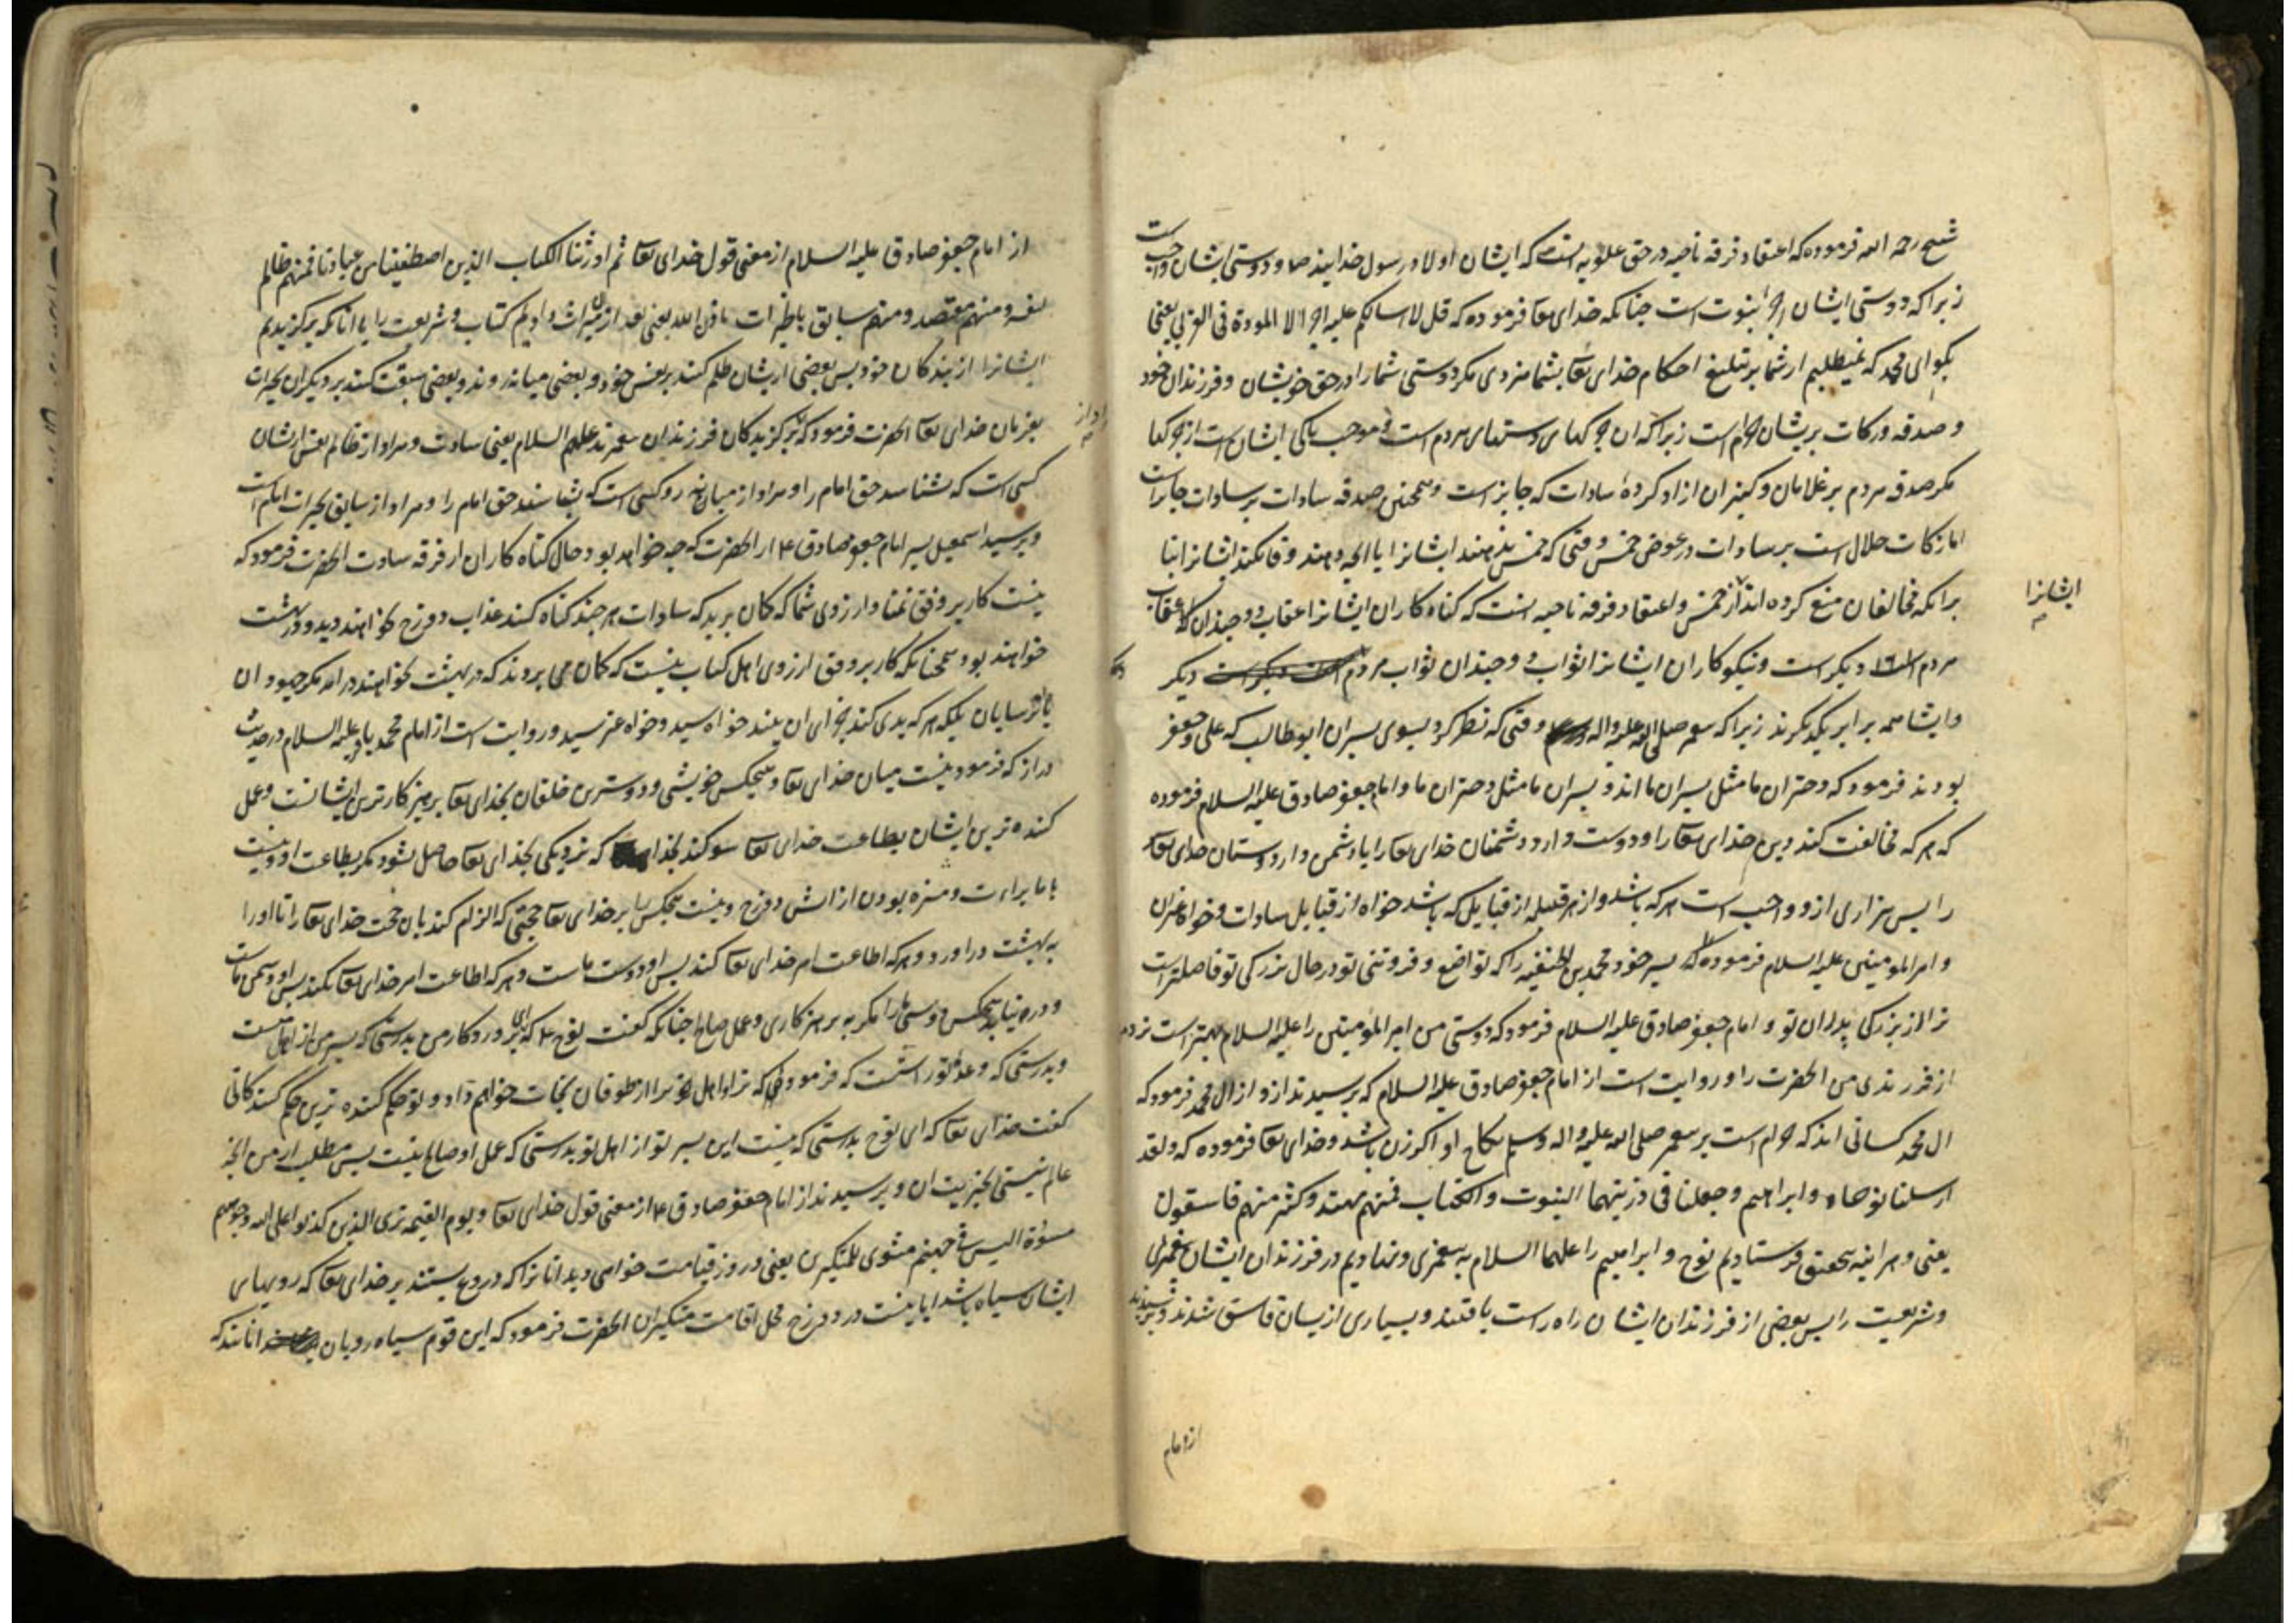 شیخ رحمه الله فرموده که اعتقاد فرقه ناجیه در حق علویه انست که ایشان اولاد رسول خدایند صلعم و دوستی ایشان واجبست
زیرا که دوستی ایشان اجر نبوت است چنانکه خدای تعا فرموده که قل لا اسالکم علیه اجرا الا المودة فی القربی یعنی
بکو ای محمد که نمیطلبم از شما بر تبلیغ احکام خدای تعا بشما مزدی مکر دوستی شما را در حق خویشان و فرزندان خود
و صدقه و زکات بریشان حرام است زیرا که ان چرکهای دستهای مردم است و موجب پاکی ایشان است از چرکها
مکر صدقه مردم بر غلامان و کنیزان ازاد کرده سادات که جایز است و همچنین صدقه سادات بر سادات جایز است
اما زکات حلال است بر سادات در عوض خمس وقتی که خمس ندهند ایشانرا یا انچه دهند وفا نکند ایشانرا بنا
برانکه مخالفان منع کرده اند از خمس و اعتقاد فرقه ناجیه انست که کناه کاران ایشانرا عقاب دو چندان عقاب
ایشانرا
مردم دیکر است و نیکو کاران ایشانرا ثواب دو چندان ثواب مردم دیکر
و ایشان همه برابر یکدیکرند زیرا که پیغمبر صلی الله علیه واله وقتی که نظر کرد بسوی پسران ابو طالب که علی و جعفر
بودند فرمود که دختران ما مثل پسران ما اند و پسران ما مثل دختران ما و امام جعفر صادق علیه السلام فرموده
که هر که مخالفت کند دین خدای تعا را و دوست دارد دشمنان خدای تعا را یا دشمن دارد دوستان خدای تعا
را پس بیزاری ازو واجب است هر که باشد و از هر قبیله از قبایل که باشد خواه از قبایل سادات و خواه غیران
و امیر المومنین علیه السلام فرموده پسر خود محمد بن الحنفیه را که تواضع و فروتنی تو در حال بزرکی تو فاضلتر است
ترا از بزرکی پدران تو و امام جعفر صادق علیه السلام فرمود که دوستی من امیر المومنین را علیه السلام بهتر است نزد من
از فرزندی من انحضرت را و روایت است از امام جعفر صادق علیه السلام که پرسیدند ازو از ال محمد فرمود که
ال محمد کسانی اند که حرام است بر پیغمبر صلی الله علیه واله وسلم نکاح او اکر زن باشد و خدای تعا فرموده که ولقد
ارسلنا نوحا و ابراهیم و جعلنا فی ذریتهما النبوت والکتاب فمنهم مهتد وکثیر منهم فاسقون
یعنی و هر اینه بتحقیق فرستادیم نوح و ابراهیم را علیهما السلام به پیغمبری و نهادیم در فرزندان ایشان پیغمبری
و شریعت را پس بعضی از فرزندان ایشان راه راست یافتند و بسیاری از یشان فاسق شدند و پرسیدند
از امام
از امام جعفر صادق علیه السلام از معنی قول خدای تعا ثم اورثنا الکتاب الذین اصطفینا من عبادنا فمنهم ظالم
لنفسه ومنهم مقتصد ومنهم سابق بالخیرات باذن الله یعنی بعد ازان میراث دادیم کتاب و شریعت را با انانکه برکزیدیم
ایشانرا از بندکان خود پس بعضی از یشان ظلم کنند بر نفس خود و بعضی میانه روند و بعضی سبقت کنند بر دیکران بخیرات
بفرمان خدای تعا انحضرت فرمود که برکزیدکان فرزندان پیغمبرند علیهم السلام یعنی سادات و مراد از ظالم بنفس از یشان
کسی است که نشناسد حق امام را و مراد از میانه رو کسی است که بشناسد حق امام را و مراد از سابق بخیرات امام است
و پرسید اسمعیل پسر امام جعفر صادق ع از انحضرت که چه خواهد بود حال کناه کاران از فرقه سادات انحضرت فرمود که
نیست کار بر وفق تمنا و ارزوی شما که کمان برید که سادات هر چند کناه کنند عذاب دوزخ نخواهند دید و در بهشت
خواهند بود همچنانکه کار بر وفق ارزوی اهل کتاب نیست که کمان می بردند که در بهشت نخواهند در امد مکر جهودان
یا ترسایان بلکه هر که بدی کند جزای ان بیند خواه سید و خواه غیر سید و روایت است از امام محمد باقر علیه السلام در حدیث
دراز که فرمود نیست میان خدای تعا و هیچکس خویشی و دوسترین خلقان بخدای تعا پرهیزکارترین ایشانست و عمل
کننده ترین ایشان بطاعت خدای تعا سوکند بخدا که نزدیکی بخدای تعا حاصل نشود مکر بطاعت او و نیست
با ما براءت و منزه بودن از اتش دوزخ و نیست هیچکس را بر خدای تعا حجتی که الزام کند بان حجت خدای تعا را تا او را
به بهشت دراورد و هر که اطاعت امر خدای تعا کند پس او دوست ماست و هر که اطاعت امر خدای تعا نکند پس او دشمن ماست
و در نیابد هیچکس دوستی ما را مکر به پرهیزکاری و عمل صالح چنانکه کفت نوح ع که ای پروردکار من بدرستی که پسر من از اهل منست
و بدرستی که وعده تو راست است که فرمودی که ترا و اهل ترا از طوفان نجات خواهم داد و تو حکم کننده ترین حکم کنندکانی
کفت خدای تعا که ای نوح بدرستی که نیست این پسر تو از اهل تو بدرستی که عمل او صالح نیست پس مطلب از من انچه
عالم نیستی بخیریت ان و پرسیدند از امام جعفر صادق ع از معنی قول خدای تعا و یوم القیمه تری الذین کذبوا علی الله وجوههم
مسودة الیس فی جهنم مثوی للمتکبرین یعنی در روز قیامت خواهی دید انانرا که دروغ بستند بر خدای تعا که رویهای
ایشان سیاه باشد ایا نیست در دوزخ محل اقامت متکبران انحضرت فرمود که این قوم سیاه رویان انانند که